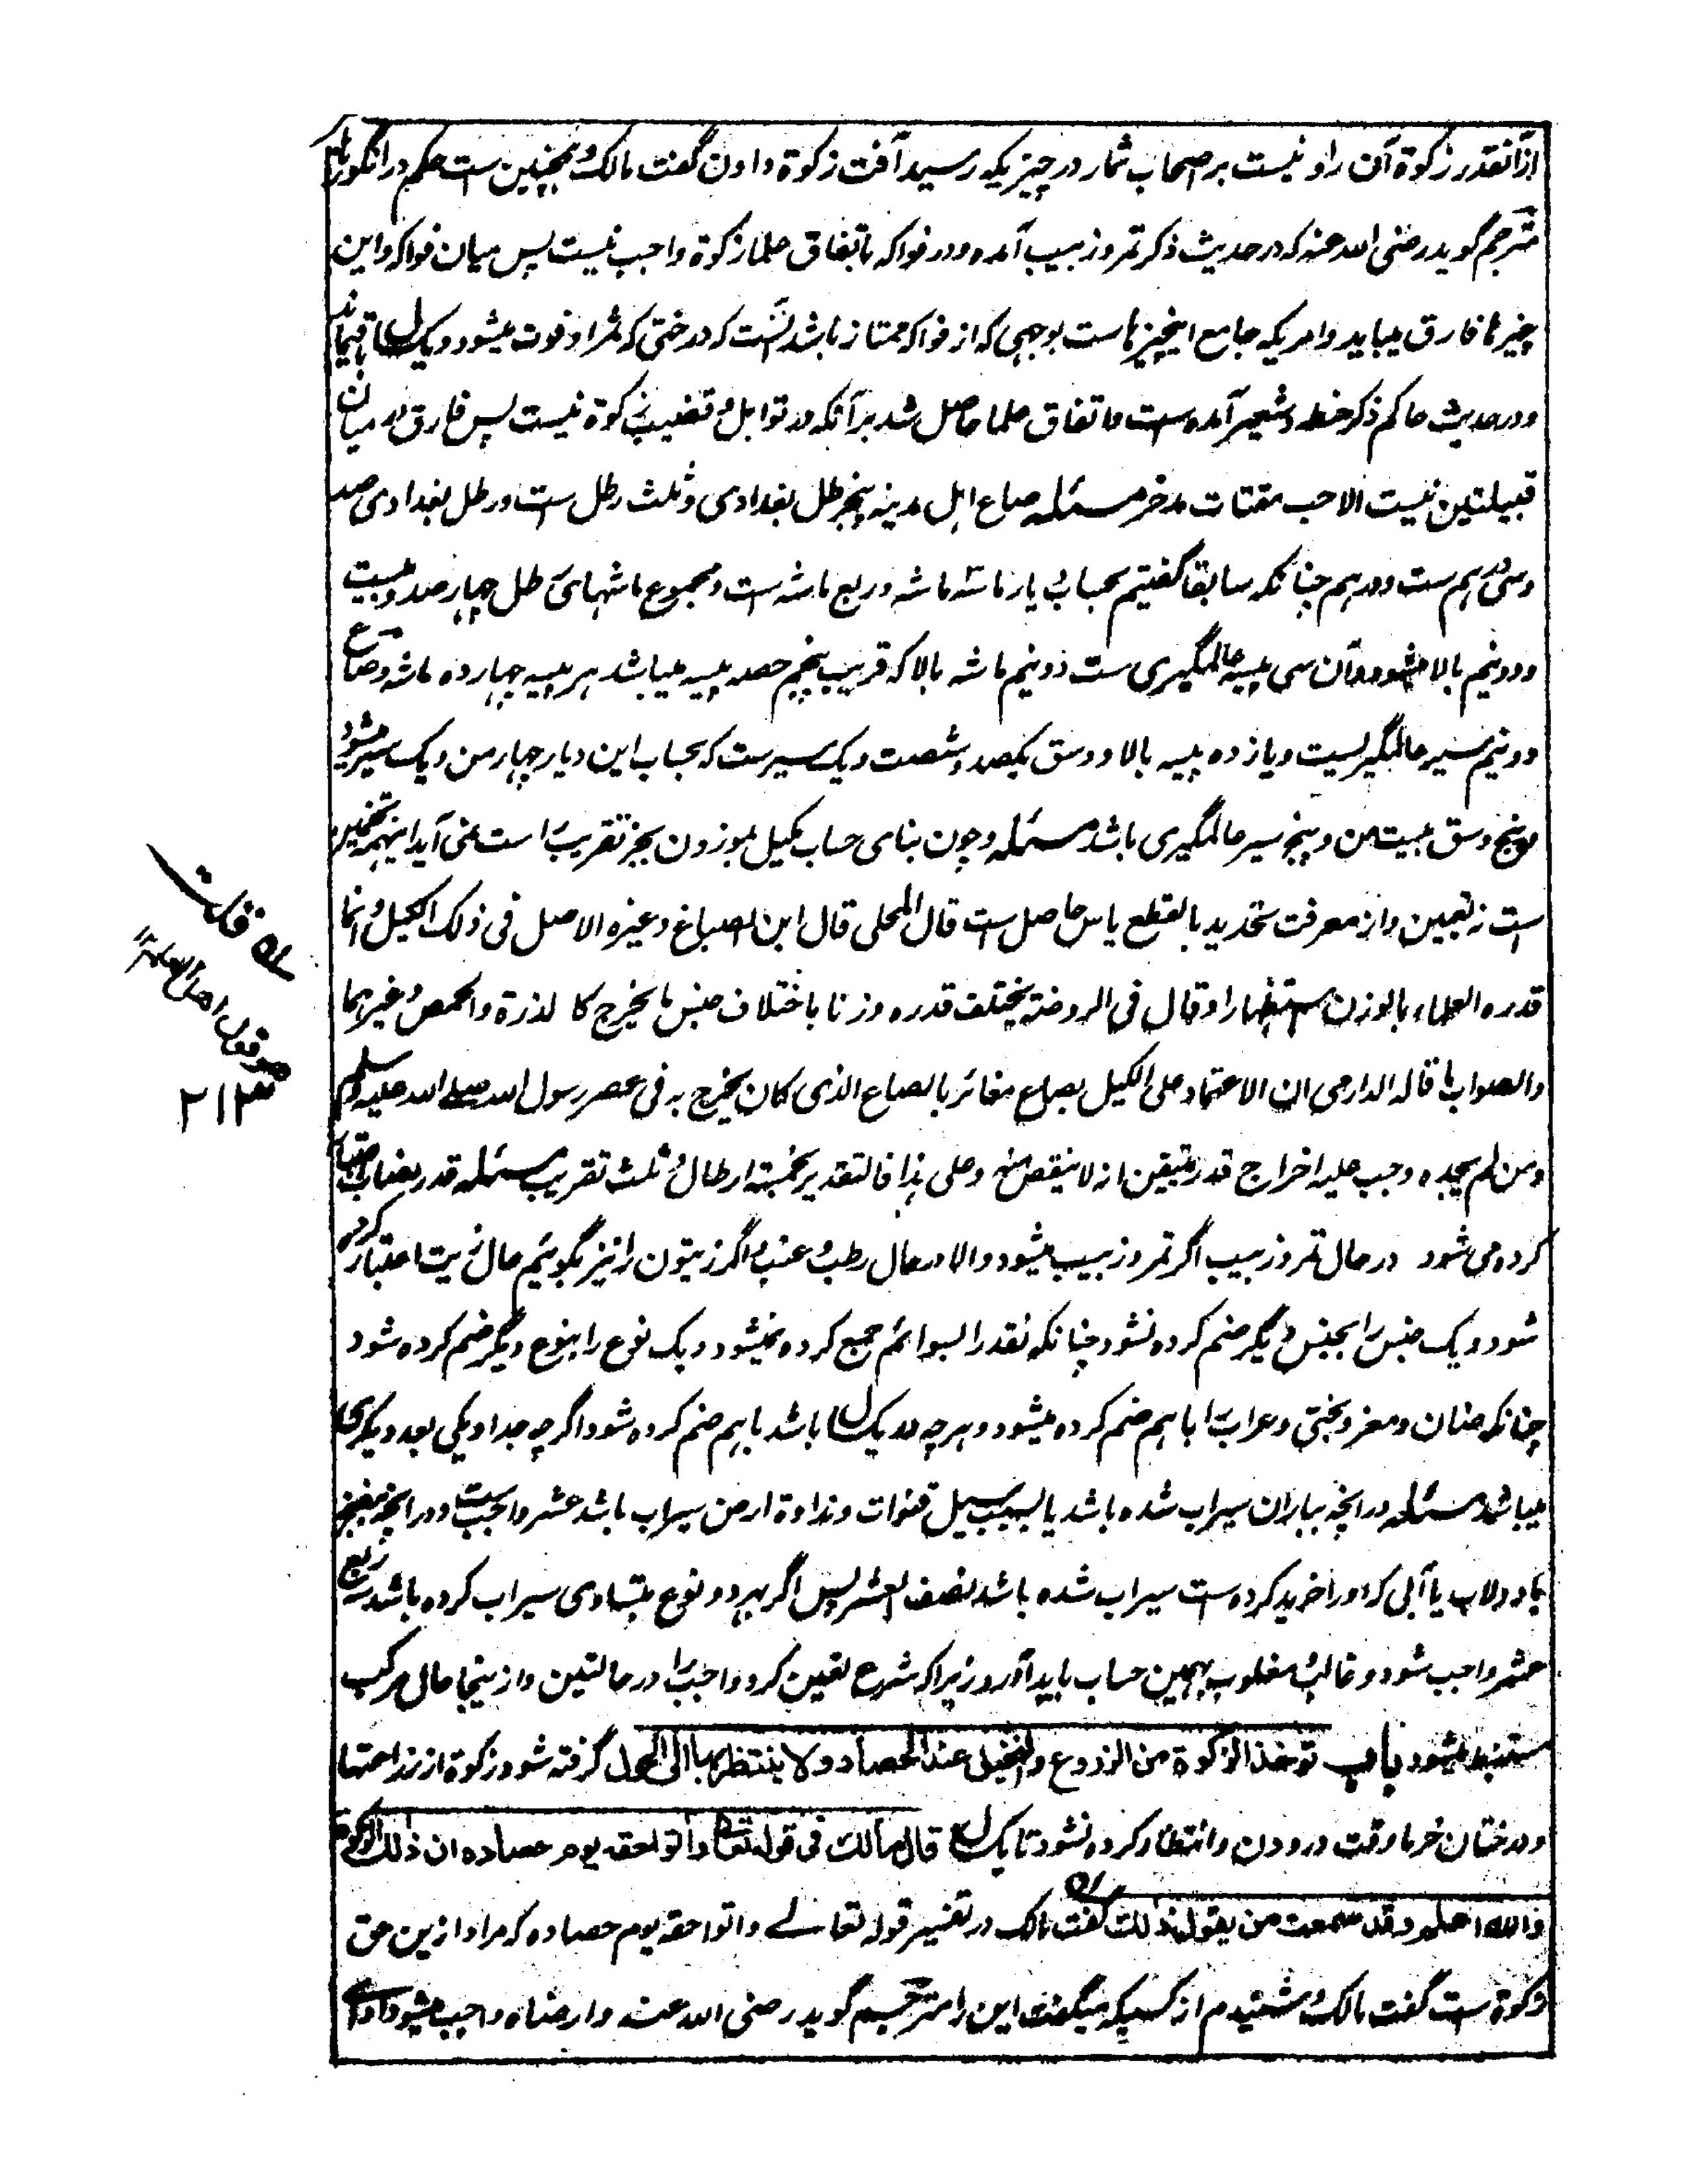 ازآنقدر زکوة آن را و نیست بر اصحاب ثمار در چیزیکه رسید آفت زکوة دادن گفت مالک و همچنین ست حکم در انگورها
مترجم گوید رضی الله عنه که در حدیث ذکر تمر و زبیب آمده و در فواکه باتفاق علما زکوة واجب نیست پس میان فواکه و این
چیزها فارق میباید و امریکه جامع اینچیزهاست بوجهی که از فواکه ممتاز باشد آنست که درختی که ثمر او قوت میشود و یکسال باقیماند
و در حدیث حاکم ذکر حنطه و شعیر آمده ست و اتفاق علما حاصل شد بر آنکه در توابل و قضیب زکوة نیست پس فارق در میان
قبیلتین نیست الا حب مقتات مدخر مسئله صاع اهل مدینه پنج رطل بغدادی و ثلث رطل ست و رطل بغدادی صد
وسی درهم ست و درهم چنانکه سابقا گفتیم بحساب این دیار ماشه و ربع ماشه ست و مجموع ماشهای رطل چهار صد و بیست
و دو نیم بالا میشود و آن سی پیسه عالمگیری ست دو نیم ماشه بالا که قریب پنجم حصه پیسه میباشد هر پیسه چهارده ماشه و صاع
دو نیم سیر عالمگیریست و یازده پیسه بالا و وسق یکصد و شصت و یک سیرست که بحساب این دیار چهار من و یک سیر میشود
و پنج وسق بیست من و پنج سیر عالمگیری باشد مسئله و چون بنای حساب مکیل بموزون بجز تقریب راست نمی آید اینهمه تخمین
است نه تعیین و از معرفت تحدید بالقطع یاس حاصل ست قال المحلی قال ابن الصباغ وغیره الاصل فی ذلک الکیل و انما
قدره العلماء بالوزن استظهارا و قال فی الروضة یختلف قدره وزنا باختلاف جنس ما یخرج کا لذرة والحمص وغیرهما
والصواب ما قاله الدارمی ان الاعتماد علی الکیل بصاع مغائر بالصاع الذی کان یخرج به فی عصر رسول الله صلی الله علیه وسلم
ومن لم یجده وجب علیه اخراج قدر یتیقن انه لا ینقص منه وعلی هذا فالتقدیر بخمسة ارطال و ثلث تقریب مسئله قدر نصاب اعتبار
کرده می شود در حال تمر و زبیب اگر تمر و زبیب میشود و الا در حال رطب و عنب و اگر زیتون را نیز بگوئیم حال زیت اعتبار کرده
شود و یک جنس را بجنس دیگر ضم کرده نشود چنانکه نقد را بسوائم جمع کرده نمیشود و یک نوع را بنوع دیگر ضم کرده شود
چنانکه ضان و معز و بختی و عراب را باهم ضم کرده میشود و هر چه در یک سال باشد باهم ضم کرده شود اگر چه جداد یکی بعد دیگری
میباشد مسئله در آنچه بباران سیراب شده باشد یا بسبب سیل قنوات و نداوة ارض سیراب باشد عشر واجب ست و در آنچه
یا دولاب یا آبی که او را خرید کرده ست سیراب شده باشد نصف العشر پس اگر بهر دو نوع بتساوی سیراب کرده باشد سه ربع
عشر واجب شود و غالب و مغلوب بهمین حساب باید آورد زیراکه شرع تعین کرد واجب را در حالتین و ازینجا حال مرکب
مستنبط میشود باب توخذ الزکوة من الزروع والنخیل عند الحصاد ولا ینتظر بها الی الحول گرفته شود زکوة از زراعتها
و درختان خرما وقت درودن و انتظار کرده نشود تا یکسال قال مالک فی قوله تعالی واتوا حقه یوم حصاده ان ذلک الزکوة
والله اعلم وقد سمعت من یقول ذلک گفت مالک در تفسیر قوله تعالے واتوا حقه یوم حصاده که مراد ازین حق
زکوة ست گفت مالک و شنیدم از کسیکه میگفت این را مترجم گوید رضی الله عنه و ارضاه واجب میشود ادای
۲۱۳